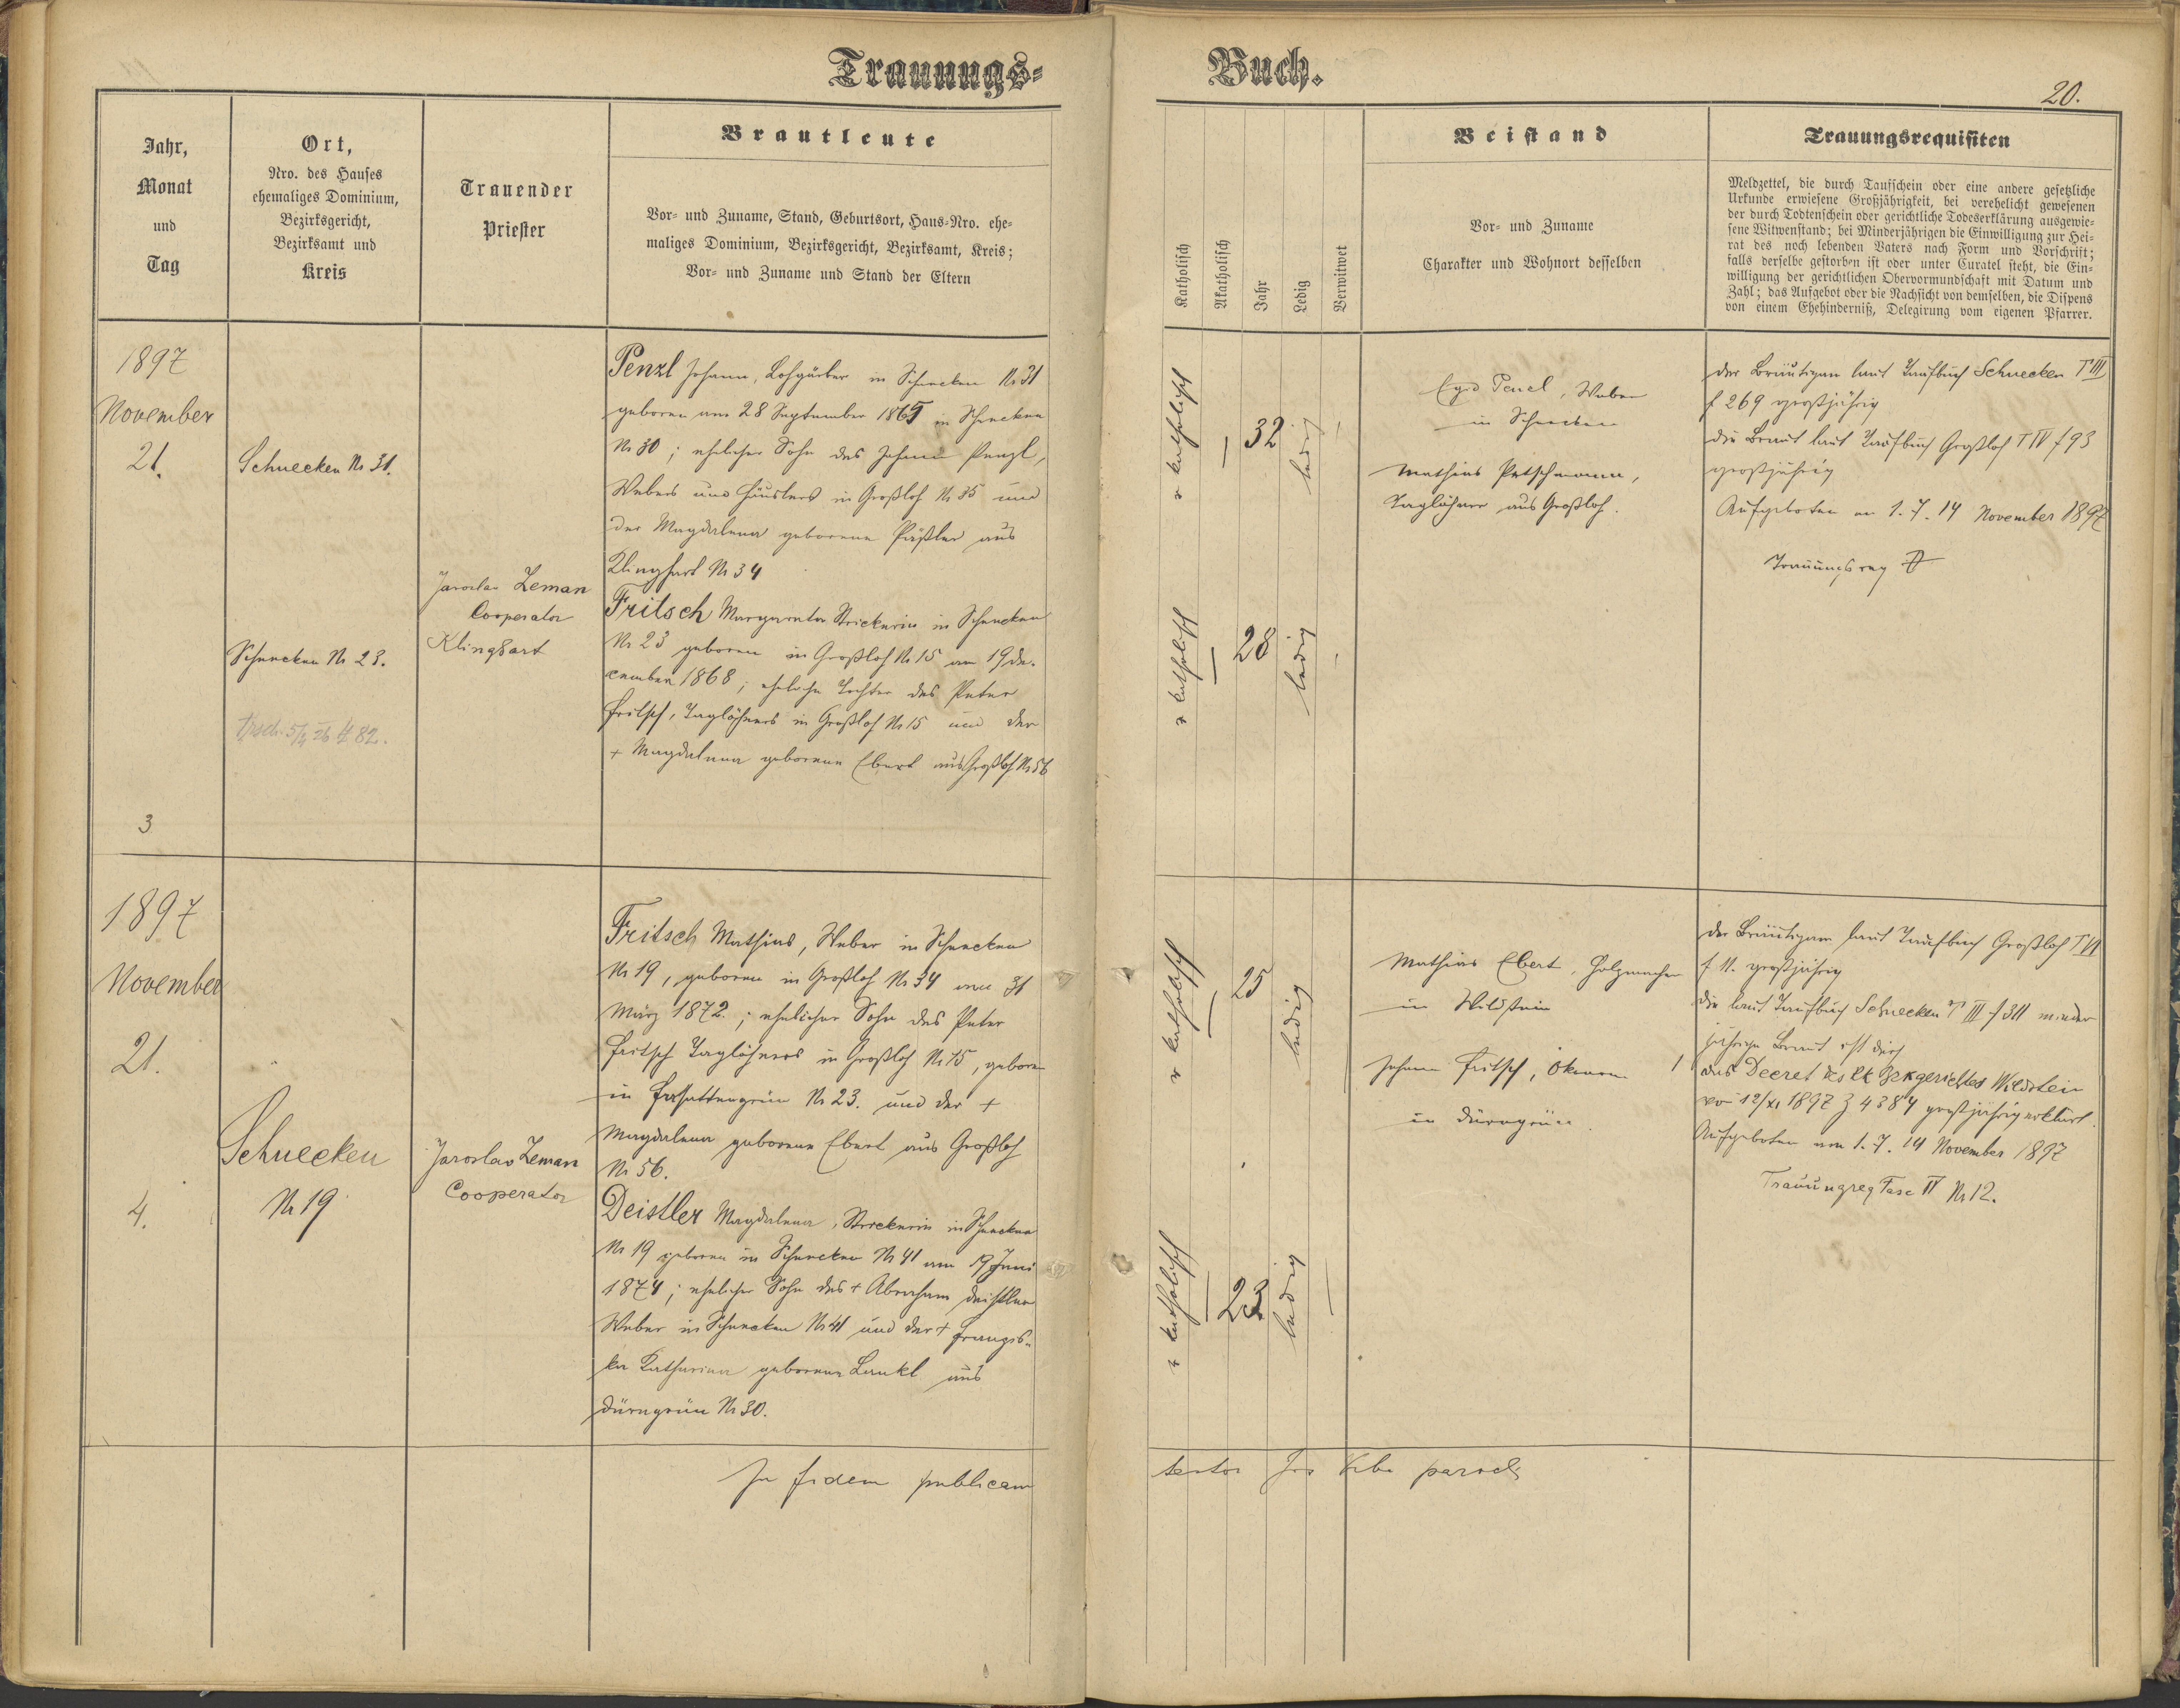 Trauungs-
Buch.
20.
Jahr,
Monat
und
Tag
Ort,
Nro. des Hauses
ehemaliges Dominium,
Bezirksgericht,
Bezirksamt und
Kreis
Trauender
Priester
Brautleute
Vor- und Zuname, Stand, Geburtsort, Haus-Nro. ehe-
maliges Dominium, Bezirksgericht, Bezirksamt, Kreis;
Vor- und Zuname und Stand der Eltern
Katholisch
Akatholisch
Jahr
Ledig
Verwitwet
Beistand
Vor- und Zuname
Charakter und Wohnort desselben
Trauungsrequisiten
Meldzettel, die durch Taufschein oder eine andere gesetzliche
Urkunde erwiesene Großjährigkeit, bei verehelicht gewesenen
der durch Todtenschein oder gerichtliche Todeserklärung ausgewie-
sene Witwenstand; bei Minderjährigen die Einwilligung zur Hei-
rat des noch lebenden Vaters nach Form und Vorschrift;
falls derselbe gestorben ist oder unter Curatel steht, die Ein-
willigung der gerichtlichen Obervormundschaft mit Datum und
Zahl; das Aufgebot oder die Nachsicht von demselben, die Dispens
von einem Ehehinderniß, Delegirung vom eigenen Pfarrer.
1897
November
21.
3
Schnecken Nr 31.
Schnecken Nr 23.
Jaroslav Zeman
Cooperator
Klinghart
Penzl Johann, Lohgärber in Schnecken Nr 31
geboren am 28 September 1865 in Schnecken
Nr 30; ehelicher Sohn des Johann Penzl,
Webers und Häuslers in Großloh Nr 35 und
der Magdalena geborene Päßler aus
Klinghart Nr 34
Fritsch Margareta Strickerin in Schnecken
Nr 23 geboren in Großloh Nr 15 am 19 De-
cember 1868; eheliche Tochter des Peter
Fritsch, Taglöhners in Großloh Nr 15 und der
+ Magdalena geborene Ebert aus Großloh Nr 56
katholisch
32
ledig
katholisch
28
ledig
Penzl, Weber
in Schnecken
Mathias Petschmann,
Taglöhner aus Großloh.
der Bräutigam laut Taufbuch Schnecken T III
f 269 großjährig
die Braut laut Taufbuch Großloh T IV f 93
großjährig
Aufgeboten am 1. 7. 14 November 1897
Trauungsreg
1897
November
21.
4.
Schnecken
Nr 19
Jaroslav Zeman
Cooperator
Fritsch Mathias, Weber in Schnecken
Nr 19, geboren in Großloh Nr 34 am 31
März 1872.; ehelicher Sohn des Peter
Fritsch Taglöhners in Großloh Nr 15, geboren
in Fasattengrün Nr 23. und der +
Magdalena geborene Ebert aus Großloh
Nr 56.
Deistler Magdalena, Strickerin in Schnecken
Nr 19 geboren in Schnecken Nr 41 am 19 Juni
1874; ehelicher Sohn des + Abraham Deistler
Weber in Schnecken Nr 41 und der + Franzis-
ka Katharina geborene Lankl aus
Dürngrün Nr 30.
katholisch
25
ledig
katholisch
23
ledig
Mathias Ebert, Holzmacher
in Wildstein
Johann Fritsch, Ökonom
in Dürngrün.
der Bräutigam laut Taufbuch Großloh T VI
f 11. großjährig
die laut Taufbuch Schnecken T III f 311 minder
jährige Braut ist durch
das Decret des kk Bzkgerichtes Wildstein
von 12/XI 1897 Z 4384 großjährig erklärt.
Aufgeboten am 1. 7. 14 November 1897
Trauungreg Fasc IV Nr 12.
In fidem publicam